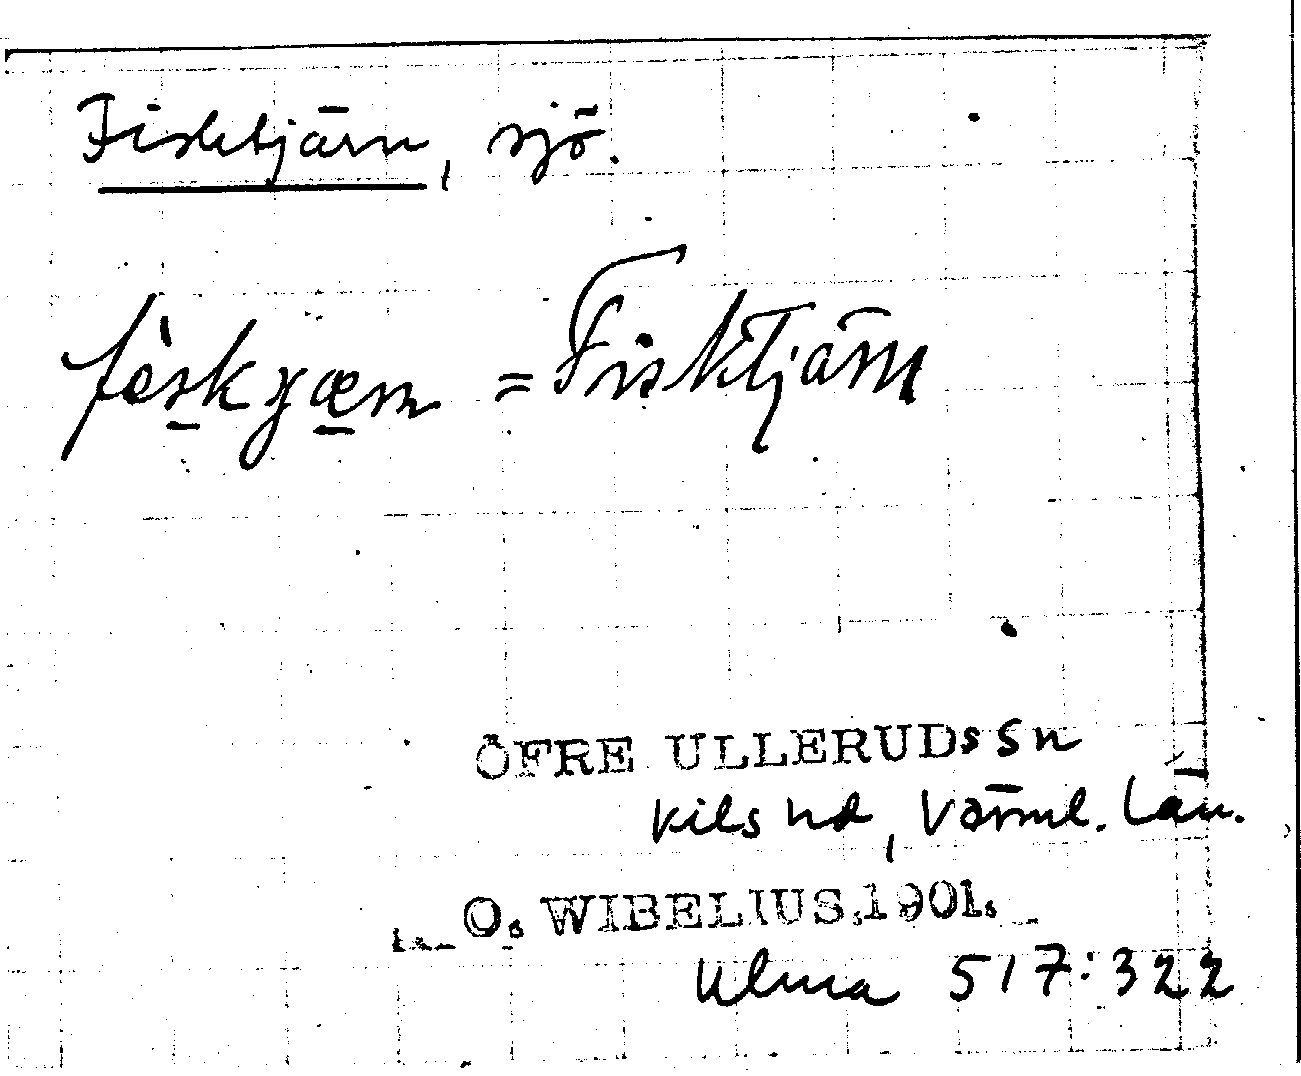 Fisktjärn, sjö.
fèskɣærn = Fisktjärn
ÖFRE ULLERUDs sn
Kils hd, Värml. län.
O. WIBELIUS. 1901.
Ulma 517:322